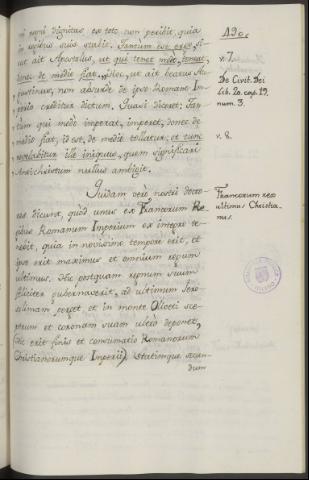 ni regni dignitas ex toto non peribit, quia
in regibus suis stabit. Tantum ut qui ex
ut ait Apostolus, ut qui tenet nunc, teneat,
donec de medio fiat. Hoc, ut ait beatus Au-
gustinus, non absurde de ipso Romano Im-
perio creditur dictum. Quasi diceret: Tan-
tum qui modo imperat, imperet, donec de
medio fiat, id est, de medio tollatur, et tunc
revelabitur ille iniquus, quem significari
Antichristum nullus ambigit.
Quidam verò nostri docto-
res dicunt, quòd unus ex Francorum Re-
gibus Romanum Imperium ex integro te-
nebit, quia in novissimo tempore erit, et
ipse erit maximus et omnium regum
ultimus. Hic postquam regnum suum
feliciter gubernaverit, ad ultimum Jero-
solimam perget, et in monte Oliveti sce-
ptrum et coronam suam ultrò deponet,
hic erit finis et consumatio Romanorum
Christianorumque Imperii) Statimque secun-
dum
190.
v. 7.
De Civit. Dei
Lib. 20. cap. 19.
num. 3.
v. 8.
Francorum rex
ultimus Christia-
nus.